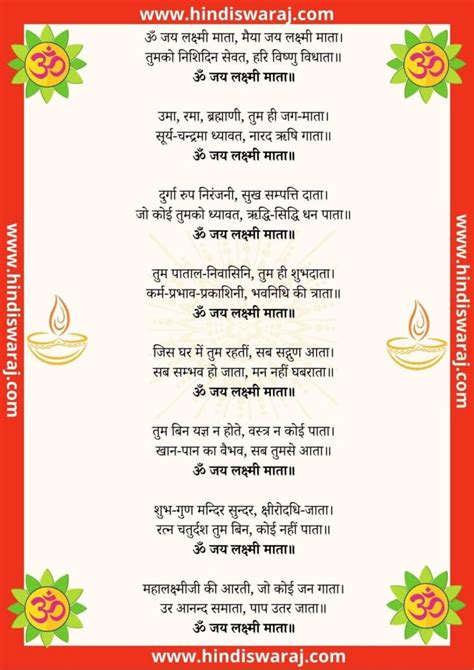 www.hindiswaraj.com
ॐ
ॐ
ॐ जय लक्ष्मी माता, मैया जय लक्ष्मी माता।
तुमको निशिदिन सेवत, हरि विष्णु विधाता॥
ॐ जय लक्ष्मी माता॥
उमा, रमा, ब्रह्माणी, तुम ही जग-माता।
सूर्य-चन्द्रमा ध्यावत, नारद ऋषि गाता॥
ॐ जय लक्ष्मी माता॥
दुर्गा रुप निरंजनी, सुख सम्पत्ति दाता।
जो कोई तुमको ध्यावत, ऋद्धि-सिद्धि धन पाता॥
ॐ जय लक्ष्मी माता॥
तुम पाताल-निवासिनि, तुम ही शुभदाता।
कर्म-प्रभाव-प्रकाशिनी, भवनिधि की त्राता॥
ॐ जय लक्ष्मी माता॥
जिस घर में तुम रहतीं, सब सद्गुण आता।
सब सम्भव हो जाता, मन नहीं घबराता॥
ॐ जय लक्ष्मी माता॥
तुम बिन यज्ञ न होते, वस्त्र न कोई पाता।
खान-पान का वैभव, सब तुमसे आता॥
ॐ जय लक्ष्मी माता॥
शुभ-गुण मन्दिर सुन्दर, क्षीरोदधि-जाता।
रत्न चतुर्दश तुम बिन, कोई नहीं पाता॥
ॐ जय लक्ष्मी माता॥
महालक्ष्मीजी की आरती, जो कोई जन गाता।
उर आनन्द समाता, पाप उतर जाता॥
ॐ जय लक्ष्मी माता॥
www.hindiswaraj.com
www.hindiswaraj.com
ॐ
ॐ
www.hindiswaraj.com